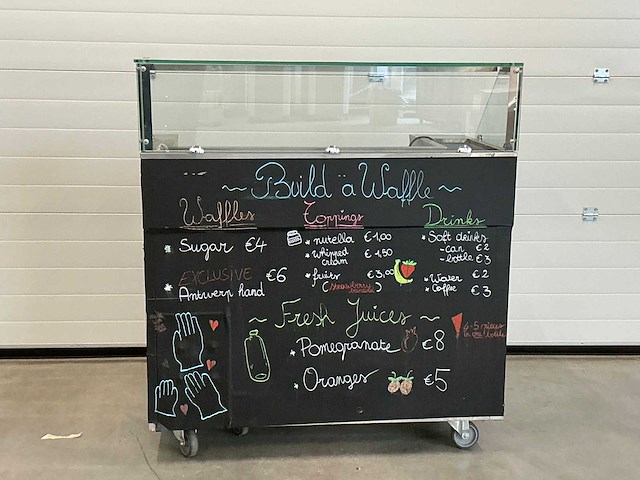 ~ Build a Waffle ~
Waffles
Sugar €4
EXCLUSIVE €6
Antwerp hand
Toppings
nutella €1,00
whipped cream €1,50
fruits €3,00
(strawberry banana)
Drinks
Soft drinks
- can €2
- bottle €3
Water €2
Coffee €3
~ Fresh Juices ~
Pomegranate €8
Oranges €5
4-5 pieces
in one bottle